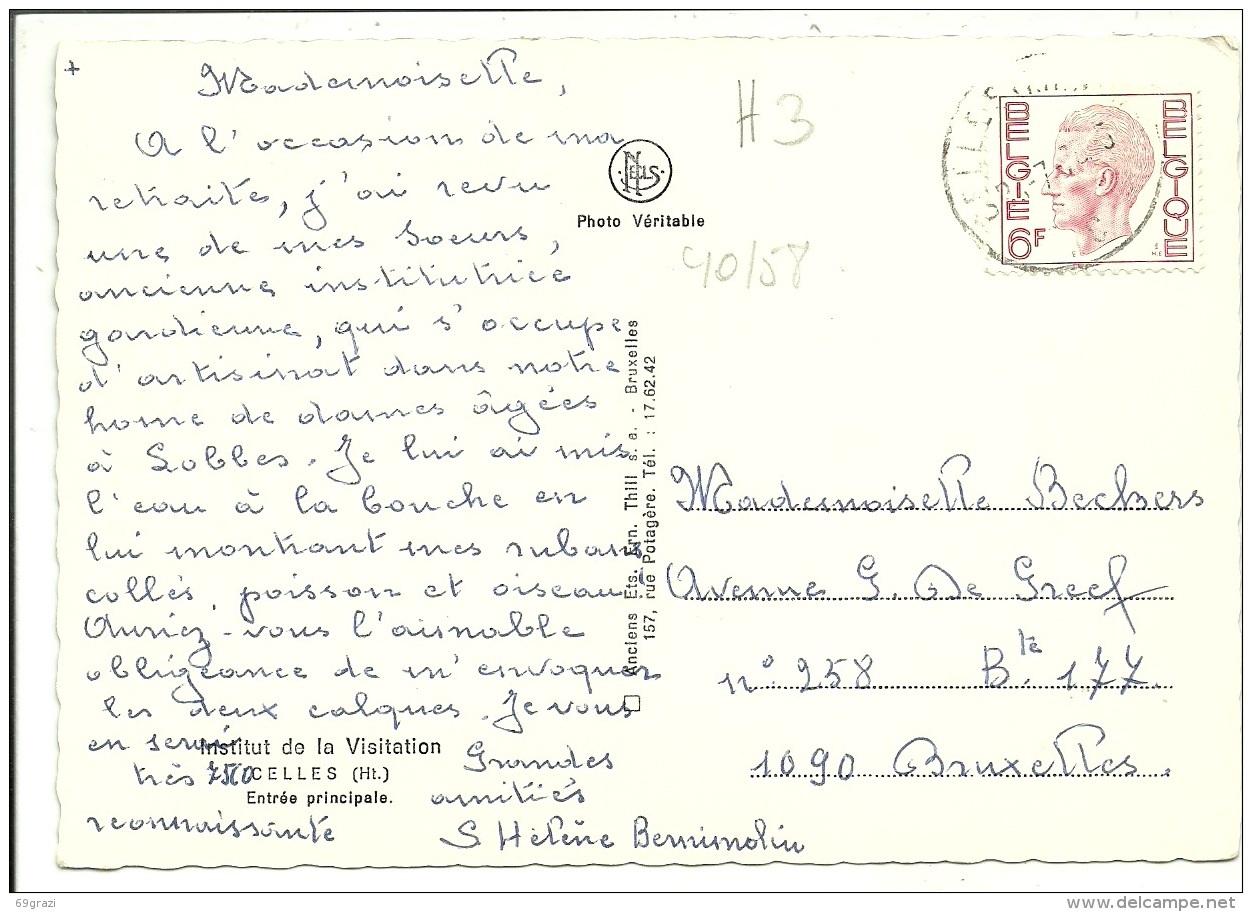 +
Mademoiselle,
A l'occasion de ma
retraite, j'ai revu
une de mes Soeurs,
ancienne institutrice
gardienne, qui s'occupe
d'artisinat dans notre
home de dames âgées
à Lobbes. Je lui ai mis
l'eau à la bouche en
lui montrant mes rubans
collés, poisson et oiseau!
Auriez-vous l'aimable
obligeance de m'envoyer
les deux calques. Je vous
en serai
très
reconnaissante
Grandes
amitiés
S. Hélène Bernimolin
7500
Institut de la Visitation
CELLES (Ht.)
Entrée principale.
NELS
Photo Véritable
H 3
40/58
Anciens Ets. Ern. Thill s. a. - Bruxelles
157, rue Potagère. Tél. : 17.62.42
CELLES
BELGIE
BELGIQUE
6F
Mademoiselle Beckers
Avenue G. De Greef
n° 258 Bte 177.
1090 Bruxelles.
69grazi
www.delcampe.net